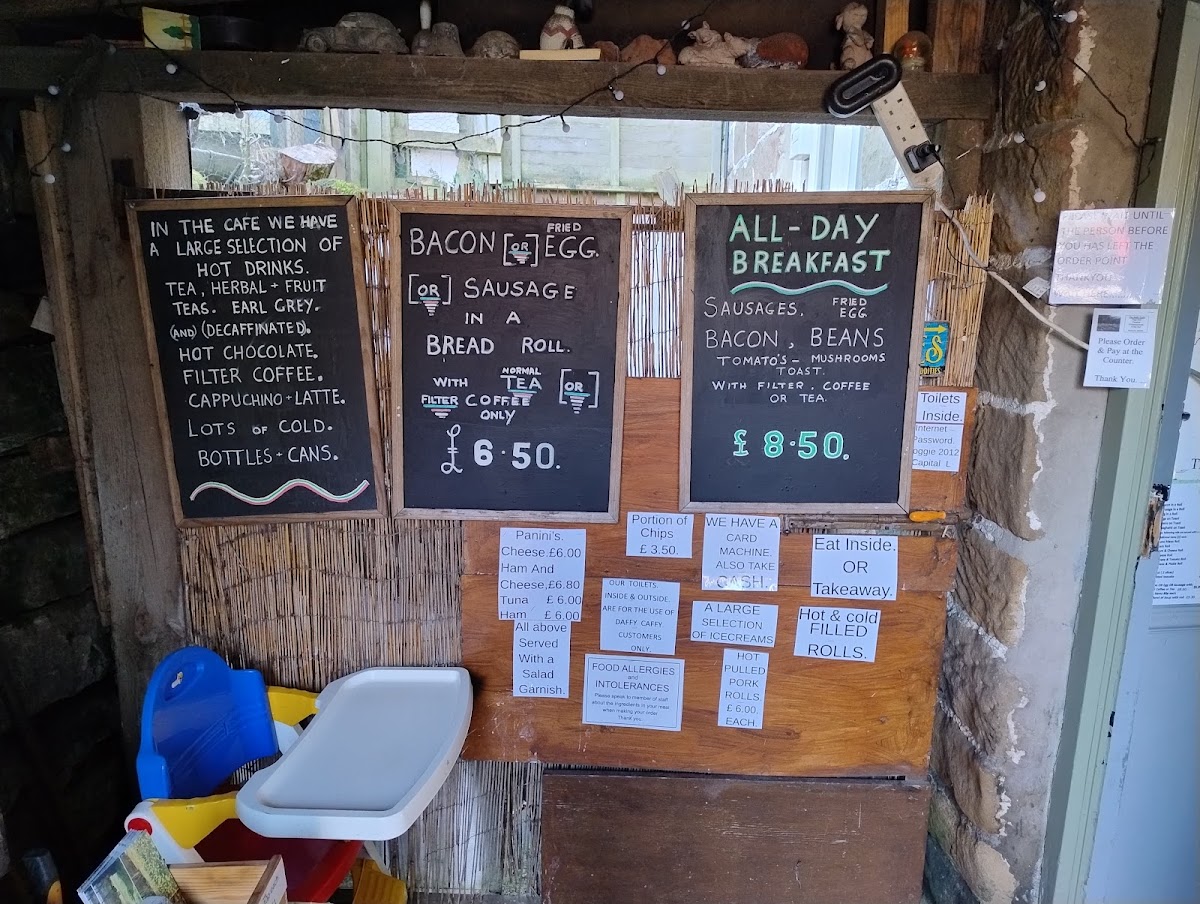 IN THE CAFE WE HAVE
A LARGE SELECTION OF
HOT DRINKS.
TEA, HERBAL + FRUIT
TEAS. EARL GREY.
(AND) (DECAFFINATED).
HOT CHOCOLATE.
FILTER COFFEE.
CAPPUCHINO + LATTE.
LOTS OF COLD.
BOTTLES + CANS.
BACON [OR] FRIED EGG.
[OR] SAUSAGE
IN A
BREAD ROLL.
WITH NORMAL TEA [OR]
FILTER COFFEE
ONLY
£6.50.
ALL-DAY
BREAKFAST
SAUSAGES. FRIED EGG
BACON, BEANS
TOMATO'S - MUSHROOMS
TOAST.
WITH FILTER. COFFEE
OR TEA.
£8.50.
UNTIL
THE PERSON BEFORE
YOU HAS LEFT THE
ORDER POINT
THANKYOU
Please Order
& Pay at the
Counter.
Thank You.
Toilets
Inside.
Internet
Password.
oggie 2012
Capital L
Panini's.
Cheese.£6.00
Ham And
Cheese,£6.80
Tuna £ 6.00
Ham £ 6.00
All above
Served
With a
Salad
Garnish.
Portion of
Chips
£ 3.50.
WE HAVE A
CARD
MACHINE.
ALSO TAKE
CASH.
Eat Inside.
OR
Takeaway.
OUR TOILETS
INSIDE & OUTSIDE.
ARE FOR THE USE OF
DAFFY CAFFY
CUSTOMERS
ONLY.
A LARGE
SELECTION
OF ICECREAMS
Hot & cold
FILLED
ROLLS.
FOOD ALLERGIES
and
INTOLERANCES
Please speak to member of staff
about the ingredients in your meal
when making your order.
Thank you.
HOT
PULLED
PORK
ROLLS.
£ 6.00.
EACH.